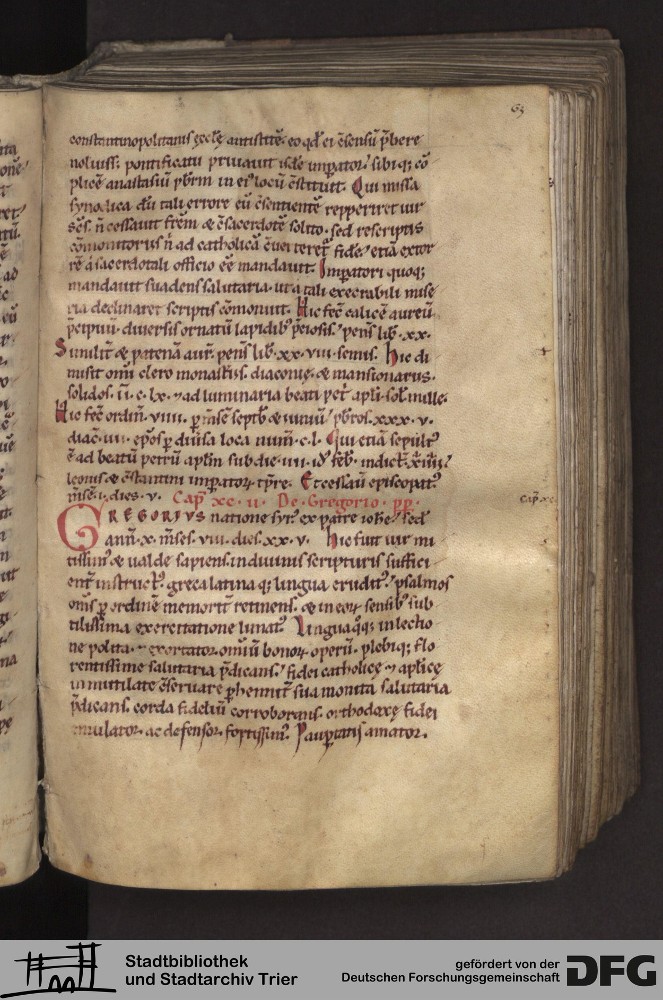 63
constantinopolitanis ęcclę antistitē. eo qđ ei ɔ̄sensū p̄bere
noluiss; pontificatu priuauit isdē imp̄ator. sibiq; cō
plicē anastasiū pb̄rm in ei' locū ɔ̄stituit. Qui missa
synodica dū tali errore eū ɔ̄sentientē repperiret uir
sc̄s. n̄ cessauit frēm & ɔ̄sacerdotē solito. sed rescriptis
cōmonitoriis n̄ ad catholicā ɔ̄uerteret' fidē. etiā extor
rē a sacerdotali officio eē mandauit. Imp̄atori quoq;
mandauit suadens salutaria. ut a tali execrabili mise
ria declinaret scriptis cōmonuit. Hic fec̄ calicē aureū
p̄cipuū. diuersis ornatū lapidib' p̄ciosis. pens̄ lib̄. xx.
Similit̄ & patenā aur̄. pens̄ lib̄. xx. viii. semis. Hic di
misit om̄i clero monasīis. diaconię. & mansionariis.
solidos. ii. c. lx. ⁊ ad luminaria beati pet̄. apl̄i. sol̄. mille.
Hic fec̄ ordin̄. viiii. p̄ m̄sē septb̄ & iuniū pb̄ros. xxx. v.
diac̄. iii. ep̄os p̄ diūsa loca num̄. c. l. Qui etiā sepult'
ē ad beatū petrū apl̄m sub die. iiii. id' feb̄. indict̄. xiiii.
leonis. & ɔ̄stantini imp̄ator. tp̄re. Et cessau̅ episcopat'
m̄sē. i. dies. v. Cap̄ xc. ii. De Gregorio. pp̄.
Cap̄. xc.
GREGORIUS natione syr'. ex patre ioh̄e. sed'
ann̄. x. m̄ses. viii. dies. xx. v. Hic fuit uir mi
tissim'. & ualde sapiens. in diuinis scripturis suffici
ent̄ instruct'. greca latina q; lingua erudit'. psalmos
om̄s p̄ ordinē memorit̄ retinens. & in eor̄ sensib' sub
tilissima exercitatione limat'. Lingua q̊q; in lectio
ne polita. ⁊ exortator. om̄iū bonor̄ operū. plebiq; flo
rentissime salutaria p̄dicans. fidei catholicę ⁊ aplicę
inmutilate ɔ̄seruare p̄hennit̄ sua monita salutaria
p̄dicans. corda fideliū corroborans. orthodoxę fidei
emulator. ac defensor. fortissim'. Paup̄tatis amator.
Stadtbibliothek
und Stadtarchiv Trier
gefördert von der
Deutschen Forschungsgemeinschaft
DFG